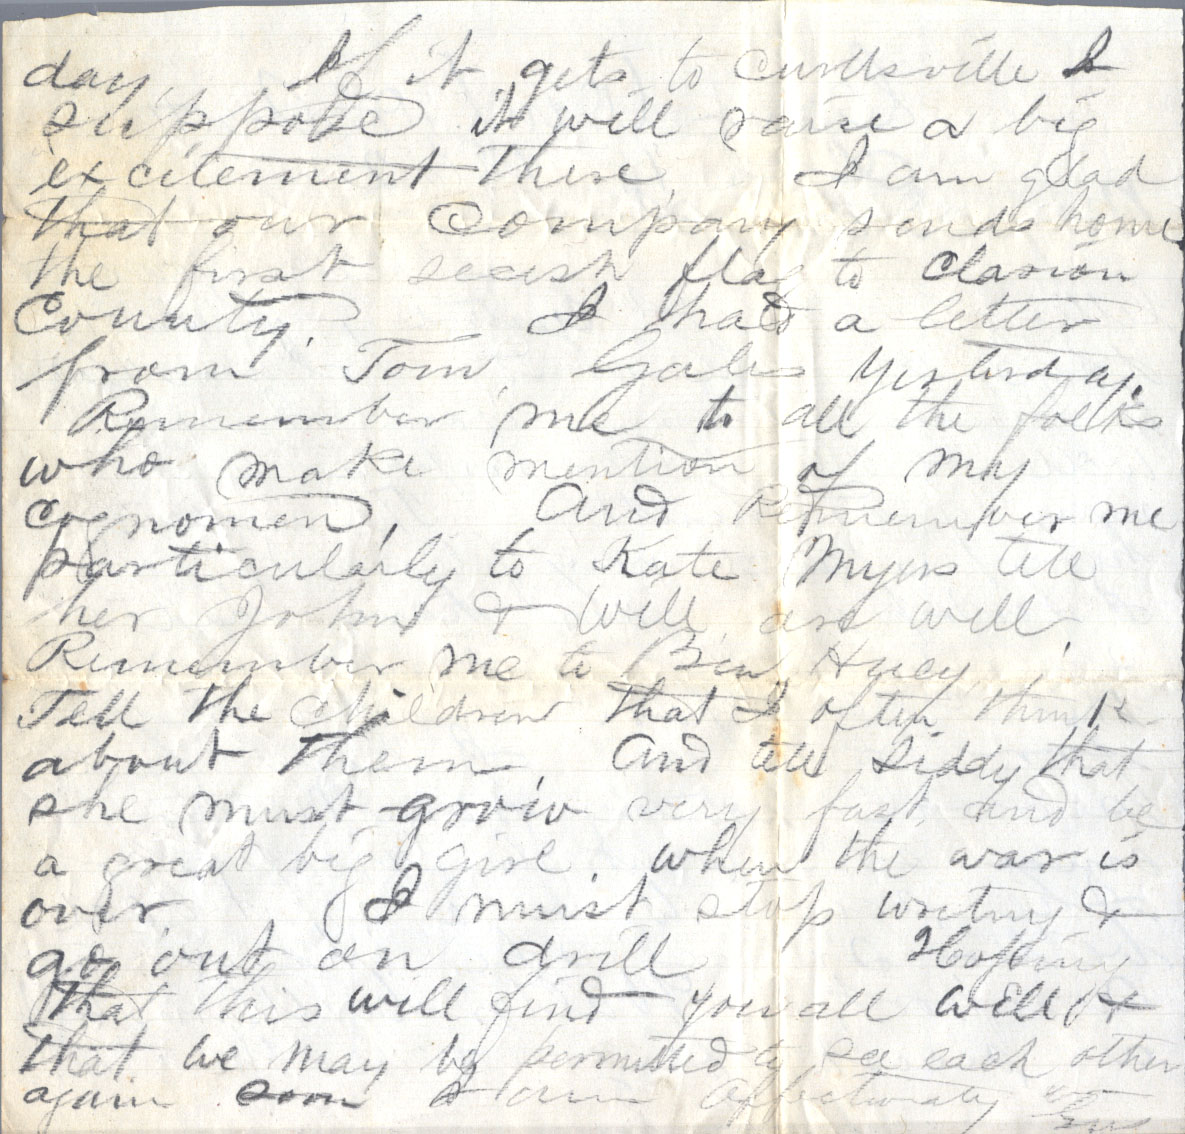 day. If it gets to Curllsville I
suppose it will raise a big
excitement there. I am glad
that our Company sends home
the first secesh flag to Clarion
County. I had a letter
from Tom. Gales yesterday.
Remember me to all the folks
who make mention of my
cognomen. And Remember me
particularly to Kate Myers tell
her John & Will are well.
Remember me to Ben. Huey.
Tell the children that I often think
about them. And tell Siddy that
she must grow very fast, and be
a great big girl when the war is
over. I must stop writing &
go out on drill Hoping
that this will find you all well &
that we may be permitted to see each other
again soon I am Affectionately